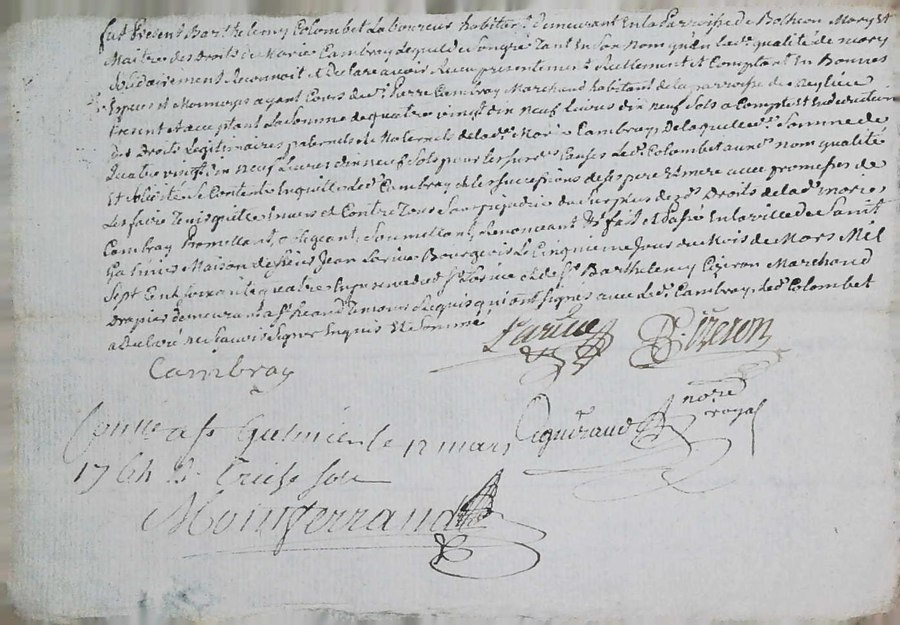 fut Present Barthelemy Colombet Laboureur habitant demeurant En la Parroisse de Botheon Mary Et
Maitre des Droits de Marie Cambray Lequel de Son gré Tant En Son Nom qu'En lad. qualité de mary
Solidairement Reconnoit et Declare avoir Receu presentement Reellement et Comptant En Bonnes
Especes et Monnoyes ayant Cours de Sr. Pierre Cambray Marchand habitant de la parroisse de
Present et acceptant La Somme de quatre vingt dix neuf Livres dix neuf Sols a Compte et En deduction
des Droits Legitimaires paternels et Maternels de lad. Marie Cambray De laquelle Somme de
Quatre vingt dix neuf Livres dix neuf Sols pour les susd. Causes Led. Colombet aux d. nom qualité
Et Solidité Se Contente En quitte led. Cambray et les successions de Ses pere Et mere avec promesses de
Les faire Tenir quitte Envers et Contre Tous Sans prejudice du Surplus de Droits de lad. Marie
Cambray Promettant, obligeant, Soumettant, Renonceant &c fait et Passé En la ville de Saint
Galmier Maison de Sieur Jean Larive Bourgeois Le Cinquieme Jour du Mois de Mars Mil
Sept Cent soixante quatre En presence dud. Sr. Larive et de Sr. Barthelemy Cizeron Marchand
Drapier demeurant a St. heand Temoins Requis qui ont signés avec led. Cambray, led. Colombet
a declaré ne Scavoir Signer Enquis Et Sommé
Larive B Cizeron
Cambray
Conlle a St Galmier le 12 mars
Pigneraud nore. royal
1764 R. Treise sols
Montferrand